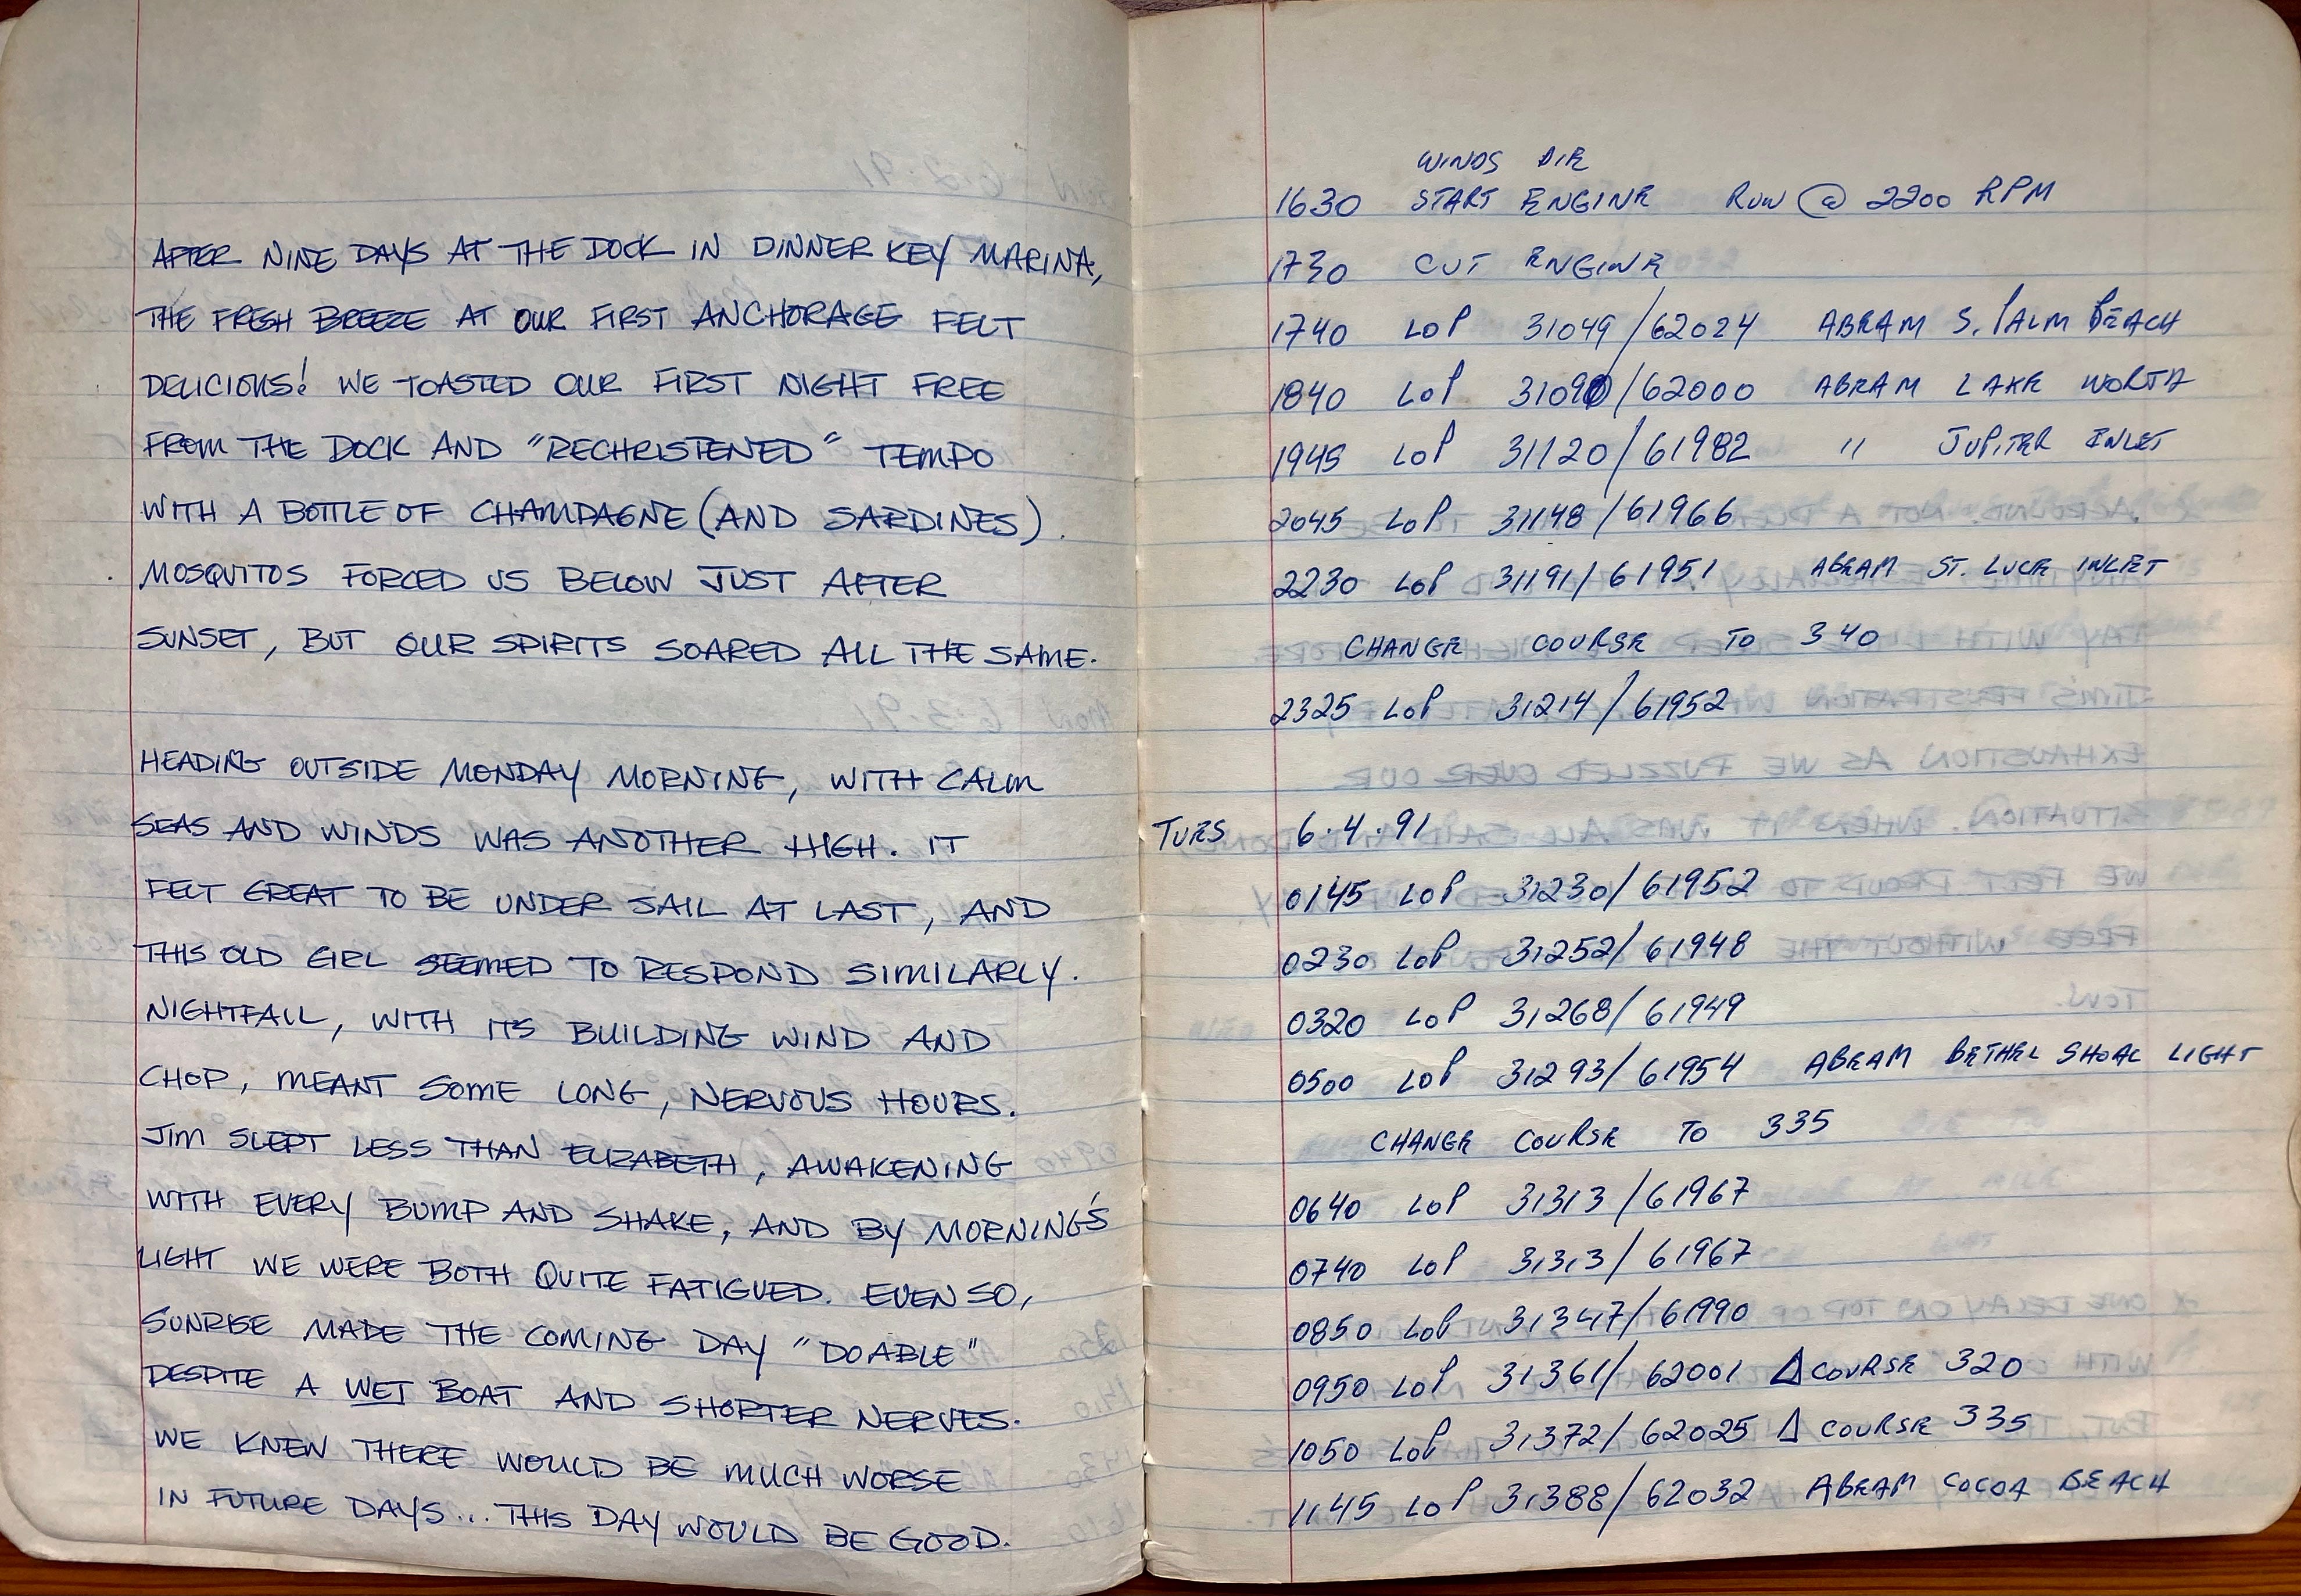 AFTER NINE DAYS AT THE DOCK IN DINNER KEY MARINA,
THE FRESH BREEZE AT OUR FIRST ANCHORAGE FELT
DELICIOUS! WE TOASTED OUR FIRST NIGHT FREE
FROM THE DOCK AND "RECHRISTENED" TEMPO
WITH A BOTTLE OF CHAMPAGNE (AND SARDINES).
MOSQUITOS FORCED US BELOW JUST AFTER
SUNSET, BUT OUR SPIRITS SOARED ALL THE SAME.
HEADING OUTSIDE MONDAY MORNING, WITH CALM
SEAS AND WINDS WAS ANOTHER HIGH. IT
FELT GREAT TO BE UNDER SAIL AT LAST, AND
THIS OLD GIRL SEEMED TO RESPOND SIMILARLY.
NIGHTFALL, WITH ITS BUILDING WIND AND
CHOP, MEANT SOME LONG, NERVOUS HOURS.
JIM SLEPT LESS THAN ELIZABETH, AWAKENING
WITH EVERY BUMP AND SHAKE, AND BY MORNING'S
LIGHT WE WERE BOTH QUITE FATIGUED. EVEN SO,
SUNRISE MADE THE COMING DAY "DOABLE"
DESPITE A WET BOAT AND SHORTER NERVES.
WE KNEW THERE WOULD BE MUCH WORSE
IN FUTURE DAYS... THIS DAY WOULD BE GOOD.
WINDS DIE
1630 START ENGINE RUN @ 2200 RPM
1730 CUT ENGINE
1740 LOP 31049/62024 ABEAM S. PALM BEACH
1840 LOP 31090/62000 ABEAM LAKE WORTH
1945 LOP 31120/61982 " JUPITER INLET
2045 LOP 31148/61966
2230 LOP 31191/61951 ABEAM ST. LUCIE INLET
CHANGE COURSE TO 340
2325 LOP 31214/61952
TUES 6.4.91
0145 LOP 31230/61952
0230 LOP 31252/61948
0320 LOP 31268/61949
0500 LOP 31293/61954 ABEAM BETHEL SHOAL LIGHT
CHANGE COURSE TO 335
0640 LOP 31313/61967
0740 LOP 31313/61967
0850 LOP 31347/61990
0950 LOP 31361/62001 Δ COURSE 320
1050 LOP 31372/62025 Δ COURSE 335
1145 LOP 31388/62032 ABEAM COCOA BEACH